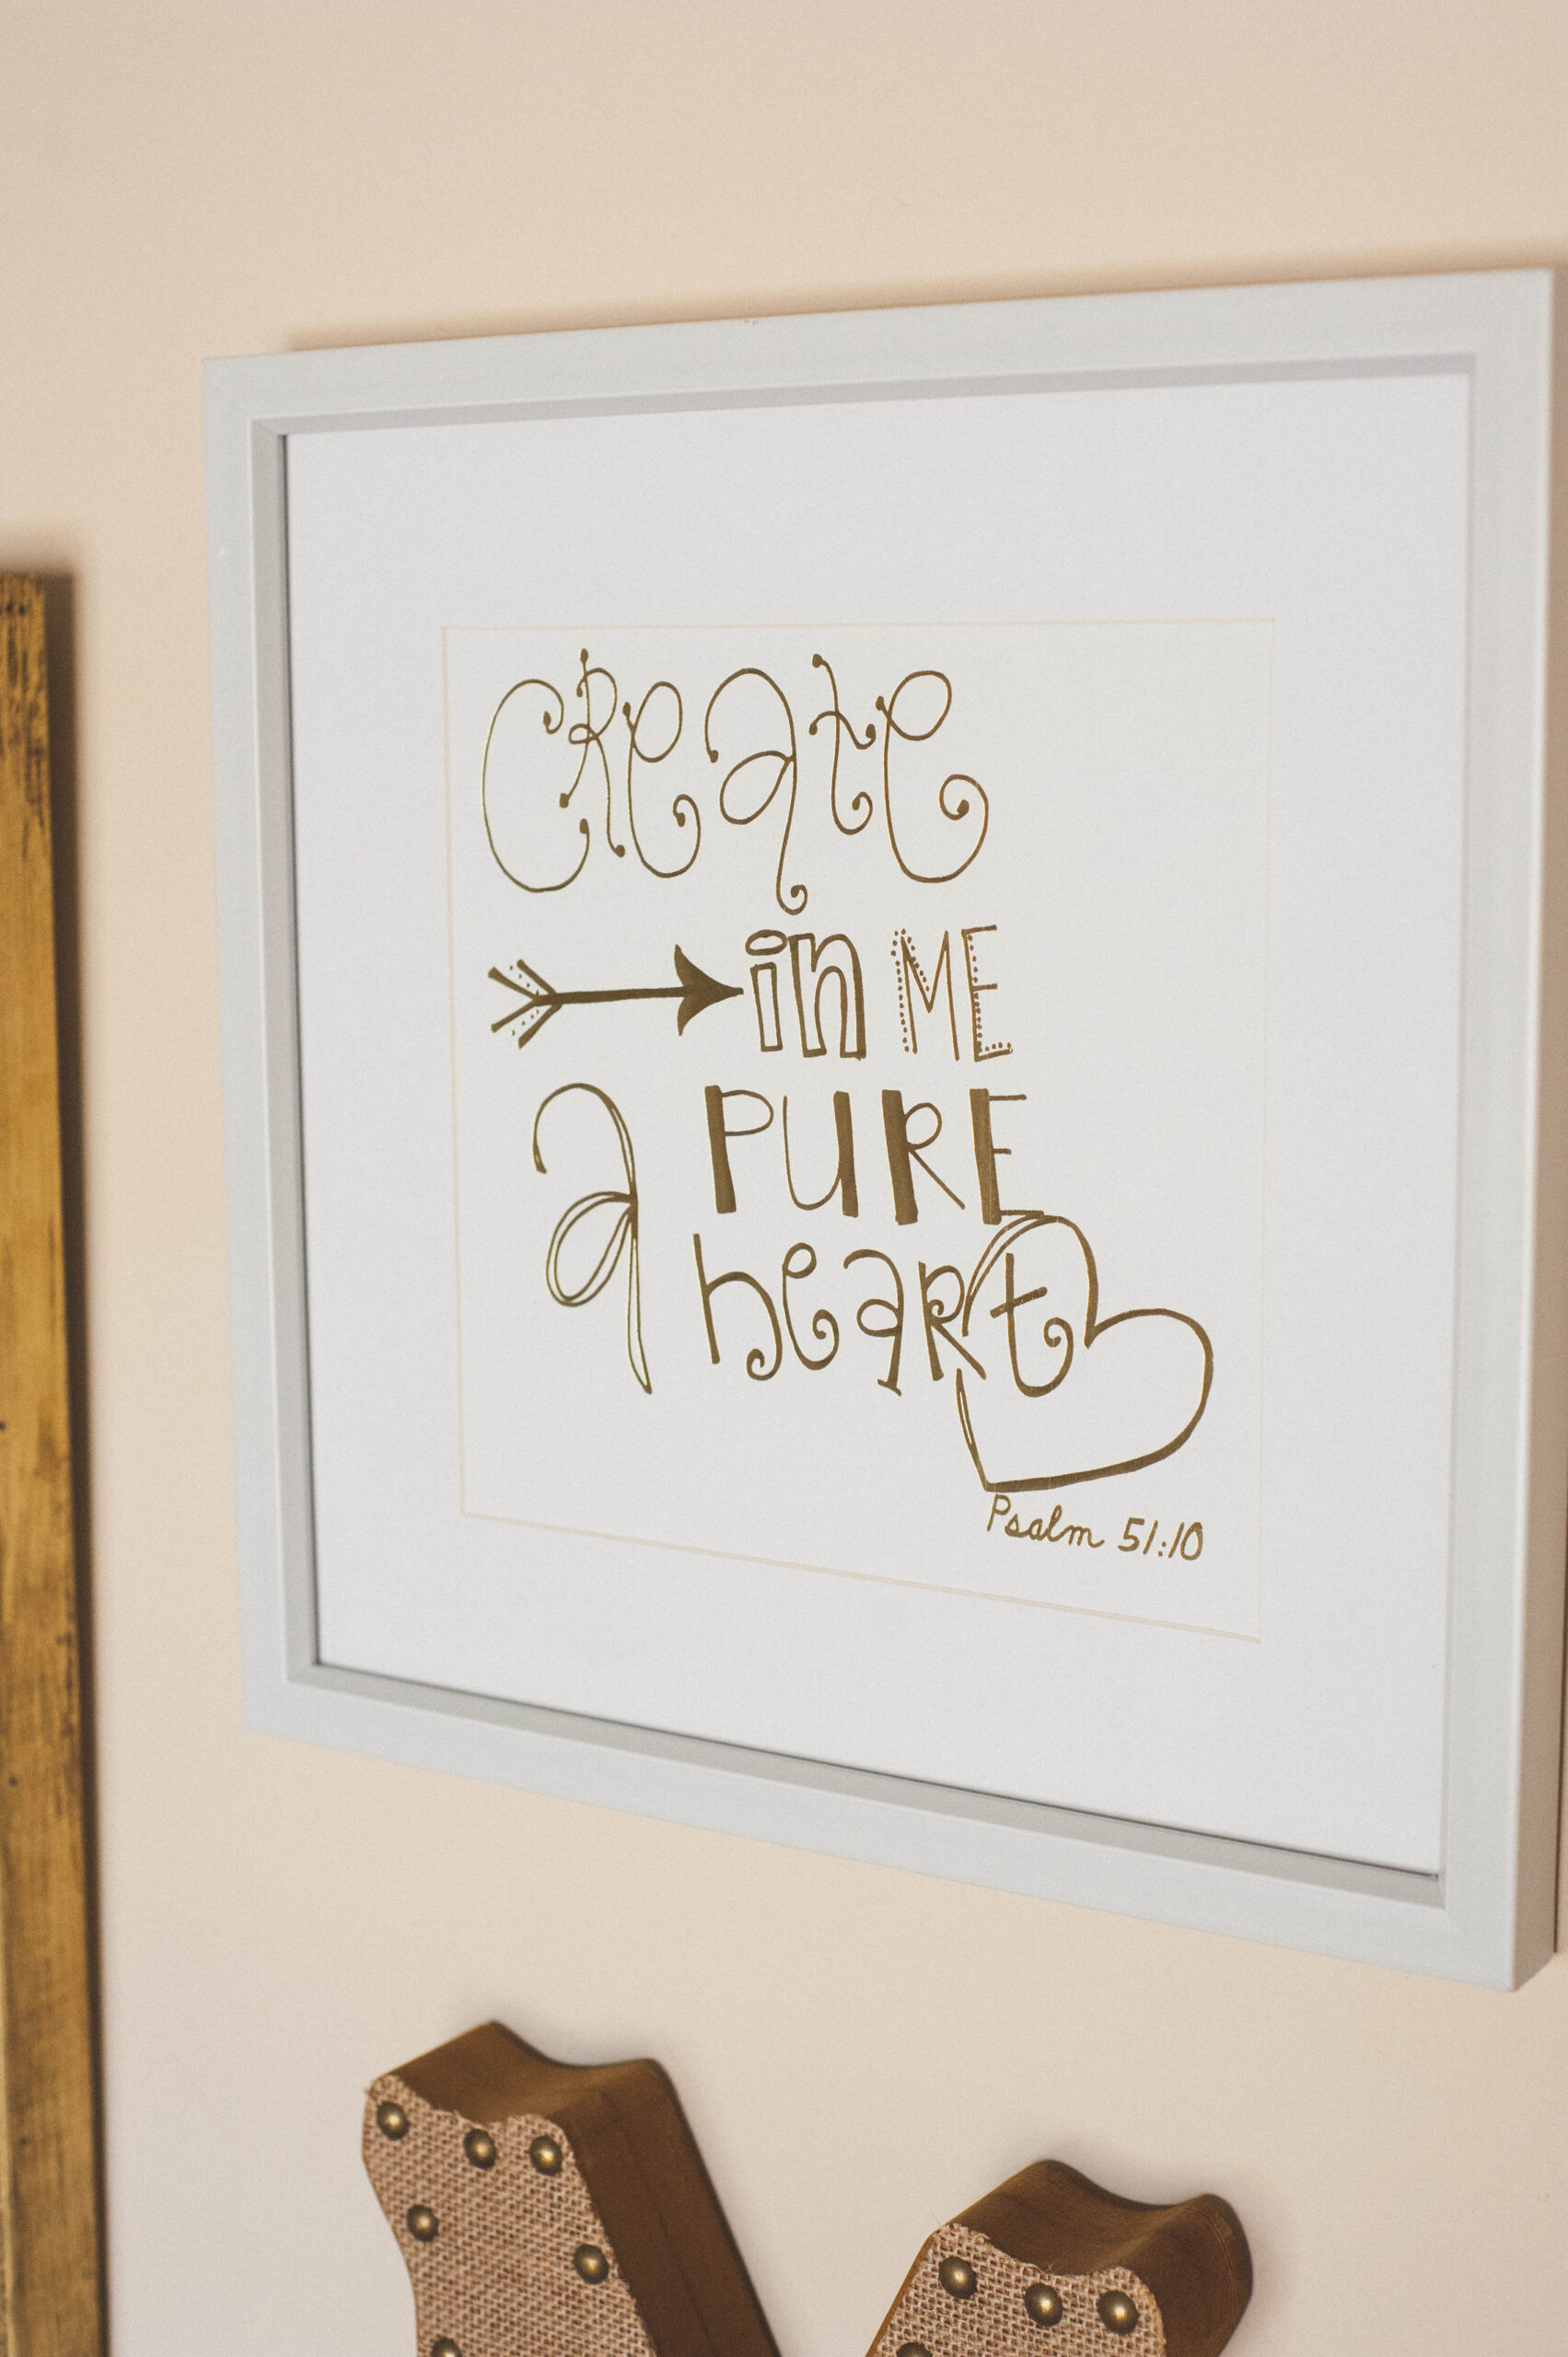 Create
in ME
a PURE
heart
Psalm 51:10